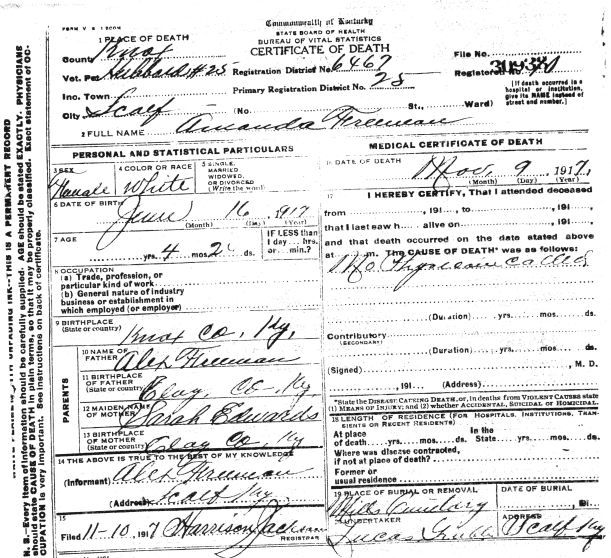 FORM V. S. 1
Commonwealth of Kentucky
STATE BOARD OF HEALTH
BUREAU OF VITAL STATISTICS
CERTIFICATE OF DEATH
1 PLACE OF DEATH
County Knox
Vot. Pct. Hubbard #25
Inc. Town
City Scalf (No. St., Ward)
Registration District No. 6467
Primary Registration District No. 25
File No. 30938
Registered No. 40
[If death occurred in a hospital or institution, give its NAME instead of street and number.]
2 FULL NAME Amanda Freeman
PERSONAL AND STATISTICAL PARTICULARS
3 SEX
Female
4 COLOR OR RACE
White
5 SINGLE, MARRIED, WIDOWED, OR DIVORCED (Write the word)
6 DATE OF BIRTH
June 16, 1917
(Month) (Day) (Year)
7 AGE
yrs. 4 mos. ds.
IF LESS than 1 day ... hrs. or ... min.?
8 OCCUPATION
(a) Trade, profession, or particular kind of work
(b) General nature of industry business or establishment in which employed (or employer)
9 BIRTHPLACE
(State or country) Knox Co, Ky,
PARENTS
10 NAME OF FATHER Alex Freeman
11 BIRTHPLACE OF FATHER (State or country) Clay, Co, Ky
12 MAIDEN NAME OF MOTHER Sarah Edwards
13 BIRTHPLACE OF MOTHER (State or country) Clay Co, Ky
14 THE ABOVE IS TRUE TO THE BEST OF MY KNOWLEDGE
(Informant) Alex Freeman
(Address) Scalf Ky,
15
Filed 11-10 1917 Harrison Jackson
REGISTRAR
MEDICAL CERTIFICATE OF DEATH
16 DATE OF DEATH
Nov, 9, 1917,
(Month) (Day) (Year)
17
I HEREBY CERTIFY, That I attended deceased
from , 191 , to , 191 ,
that I last saw h alive on , 191 ,
and that death occurred on the date stated above
at m. The CAUSE OF DEATH* was as follows:
No Physician called
(Duration) yrs. mos. ds.
Contributory
(SECONDARY)
(Duration) yrs. mos. ds.
(Signed) , M. D.
, 191 (Address)
*State the DISEASE CAUSING DEATH, or, in deaths from VIOLENT CAUSES state (1) MEANS OF INJURY; and (2) whether ACCIDENTAL, SUICIDAL or HOMICIDAL.
18 LENGTH OF RESIDENCE (FOR HOSPITALS, INSTITUTIONS, TRANSIENTS OR RECENT RESIDENTS)
At place of death yrs. mos. ds. In the State yrs. mos. ds.
Where was disease contracted, if not at place of death?
Former or usual residence
19 PLACE OF BURIAL OR REMOVAL
DATE OF BURIAL
, 191
20 UNDERTAKER
Lucas
ADDRESS
Scalf Ky
N. B.—Every item of information should be carefully supplied. AGE should be stated EXACTLY. PHYSICIANS should state CAUSE OF DEATH in plain terms, so that it may be properly classified. Exact statement of OCCUPATION is very important. See instructions on back of certificate.
INK---THIS IS A PERMANENT RECORD